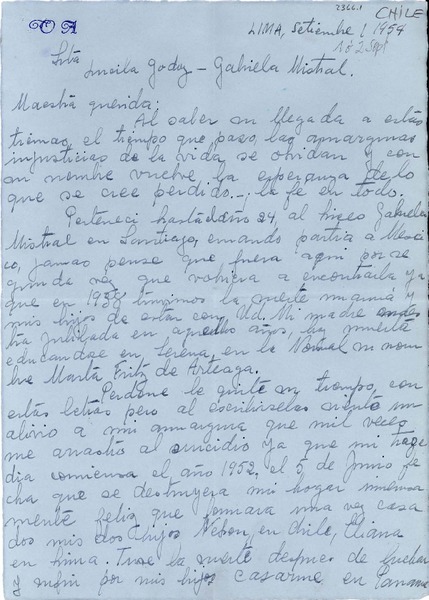 2366.1
CHILE
O A
LIMA, Setiembre 1 1954
1 ó 2 Sept
Srta
Lucila Godoy - Gabriela Mistral.
Maestra querida:
Al saber su llegada a estas
tierras, el tiempo que paso, las amarguras
injusticias de la vida se olvidan y con
su nombre vuelve la esperanza de lo
que se cree perdido... la fe en todo.
Perteneci hasta 24, al Liceo Gabriela
Mistral en Santiago, cuando partia a Mexi
co, jamas pense que fuera aqui por se
gunda vez que volviera a encontrarla ya
que en 1938 tuvimos la suerte mamá y
mis hijos de estar con Ud. Mi madre
jubilada en aquellos años, hoy muerta
educandose en Serena, en la Normal su nom
bre Marta Fritz de Arteaga.
Perdone le quite su tiempo, con
estas letras pero al escribirselas siento un
alivio a mi amargura que mil veces
me arrastró al suicidio ya que mi trage
dia comienza el año 1952, el 5 de Junio fe
cha que se destruyera mi hogar inmensa
mente feliz que formara una vez casa
dos mis dos hijos Nelson, en Chile, Eliana
en Lima. Tuve la suerte despues de luchar
y sufrir por mis hijos casarme en Panamá